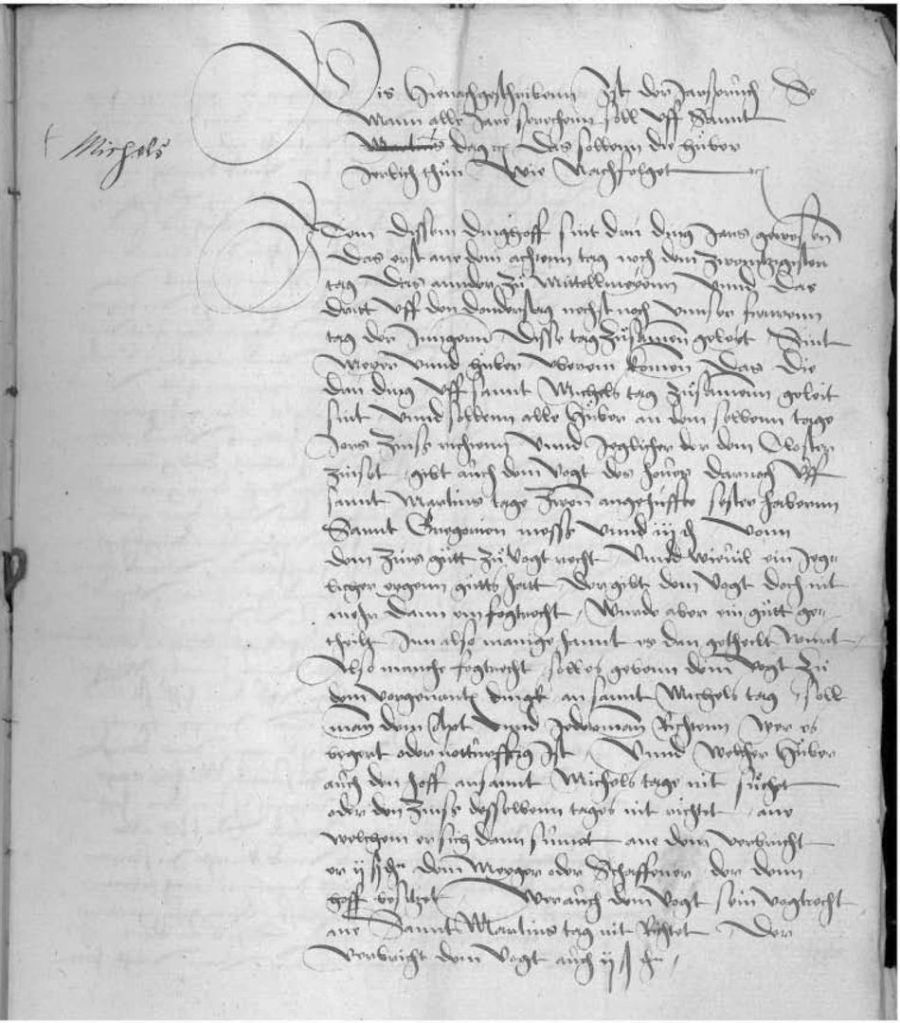 Michels
Dis hienachgeschribenn Ist der Jarspruch So
Mann alle Jare sprechenn soll Uff Sannt
Martins dag Das sollenn die hüber
Jerlich thün Wie Nachfolget
Item dissem dinghoff sint drü ding Jars gewesen
Das erst ane dem achtenn tag noch dem zwentzigsten
tag Das annder zü Mittellmeyenn Unnd Das
dritt Uff den donderstag nechst noch Unnser frauwenn
tag der Jungern disse tag züsamen geleit Sint
Meyer Unnd hüber Uberein komen Das Die
drü ding Uff sannt Michels tag züsamenn geleit
sint Unnd sollenn alle hüber an dem selbenn tage
Jors zinss richtenn Unnd Jeglicher der dem Closter
zinset gibt auch dem Vogt des Jores darnoch Uff
sannt Martins tage zwen angehuffte sester habernn
Sannt Gregorien mess Unnd iiij d Vonn
dem zins gütt zü Vogt recht Unnd wieuil ein Jeg-
licher eigenn gütts hatt der gibt dem Vogt doch nit
mehr dann ein fogtrecht Wurde aber ein gütt ge-
theilt Inn also manige hannt es dan getheilt wurt
Also manche fogtrecht soll es gebenn dem Vogt Zü
dem vorgenanten dingk an sannt Michels tag soll
man dem Apt Unnd Jederman Richtenn Wer es
begert oder notturfftig Ist Unnd Welcher hüber
auch den hoff an sannt Michels tage nit sücht
oder den Zinss desselbenn tages nit richtet ane
welchem er sich dann sümet ane dem verbricht
er ij ß d dem Meyger oder Schaffener der denn
hoff besitzet Wer auch dem Vogt sein Vogtrecht
ane Sannt Martins tag nit Richtet Der
Verbricht dem Vogt auch ij ß d